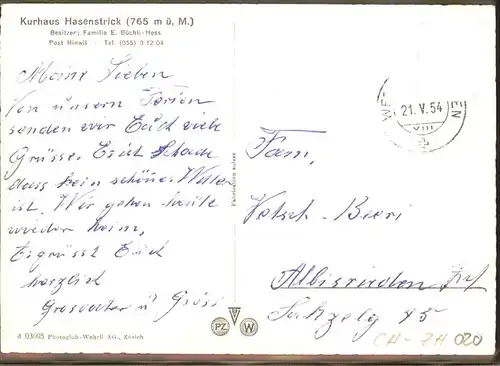 Kurhaus Hasenstrick (765 m ü. M.)
Besitzer: Familie E. Büchli-Hess
Post Hinwil · Tel. (055) 3 12 04
Meine Lieben
Von unsern Ferien
senden wir Euch viele
Grüsse.
dass kein schönes Wetter
ist. Wir gehen heute
wieder heim,
Es grüsst Euch
herzlich
Grosvater u Grosi
21. V. 54
VIII
EN
Fam.
Vetsch-Bieri
Albisrieden Zch
15
CH-ZH 020
Fabrikation suisse
PZ
W
d 03005 Photoglob-Wehrli AG., Zürich